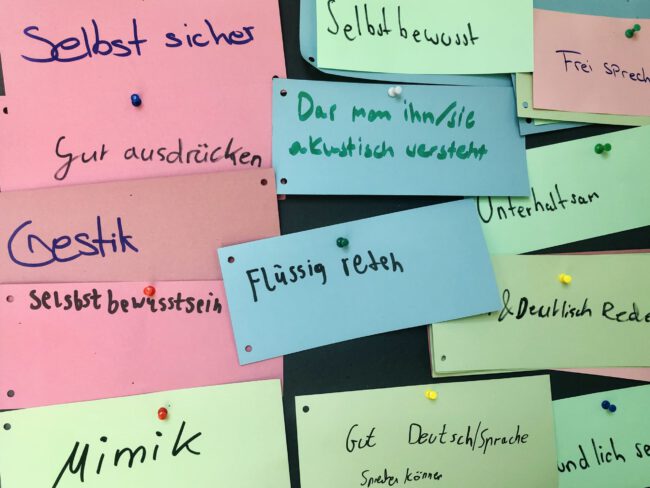 Selbst sicher
Gut ausdrücken
Gestik
selsbstbewusstsein
Mimik
Selbstbewusst
Das man ihn/sie
akustisch versteht
Flüssig reden
Gut Deutsch/Sprache
Sprechen können
Frei sprech
Unterhaltsam
&Deutlisch Rede
undlich se